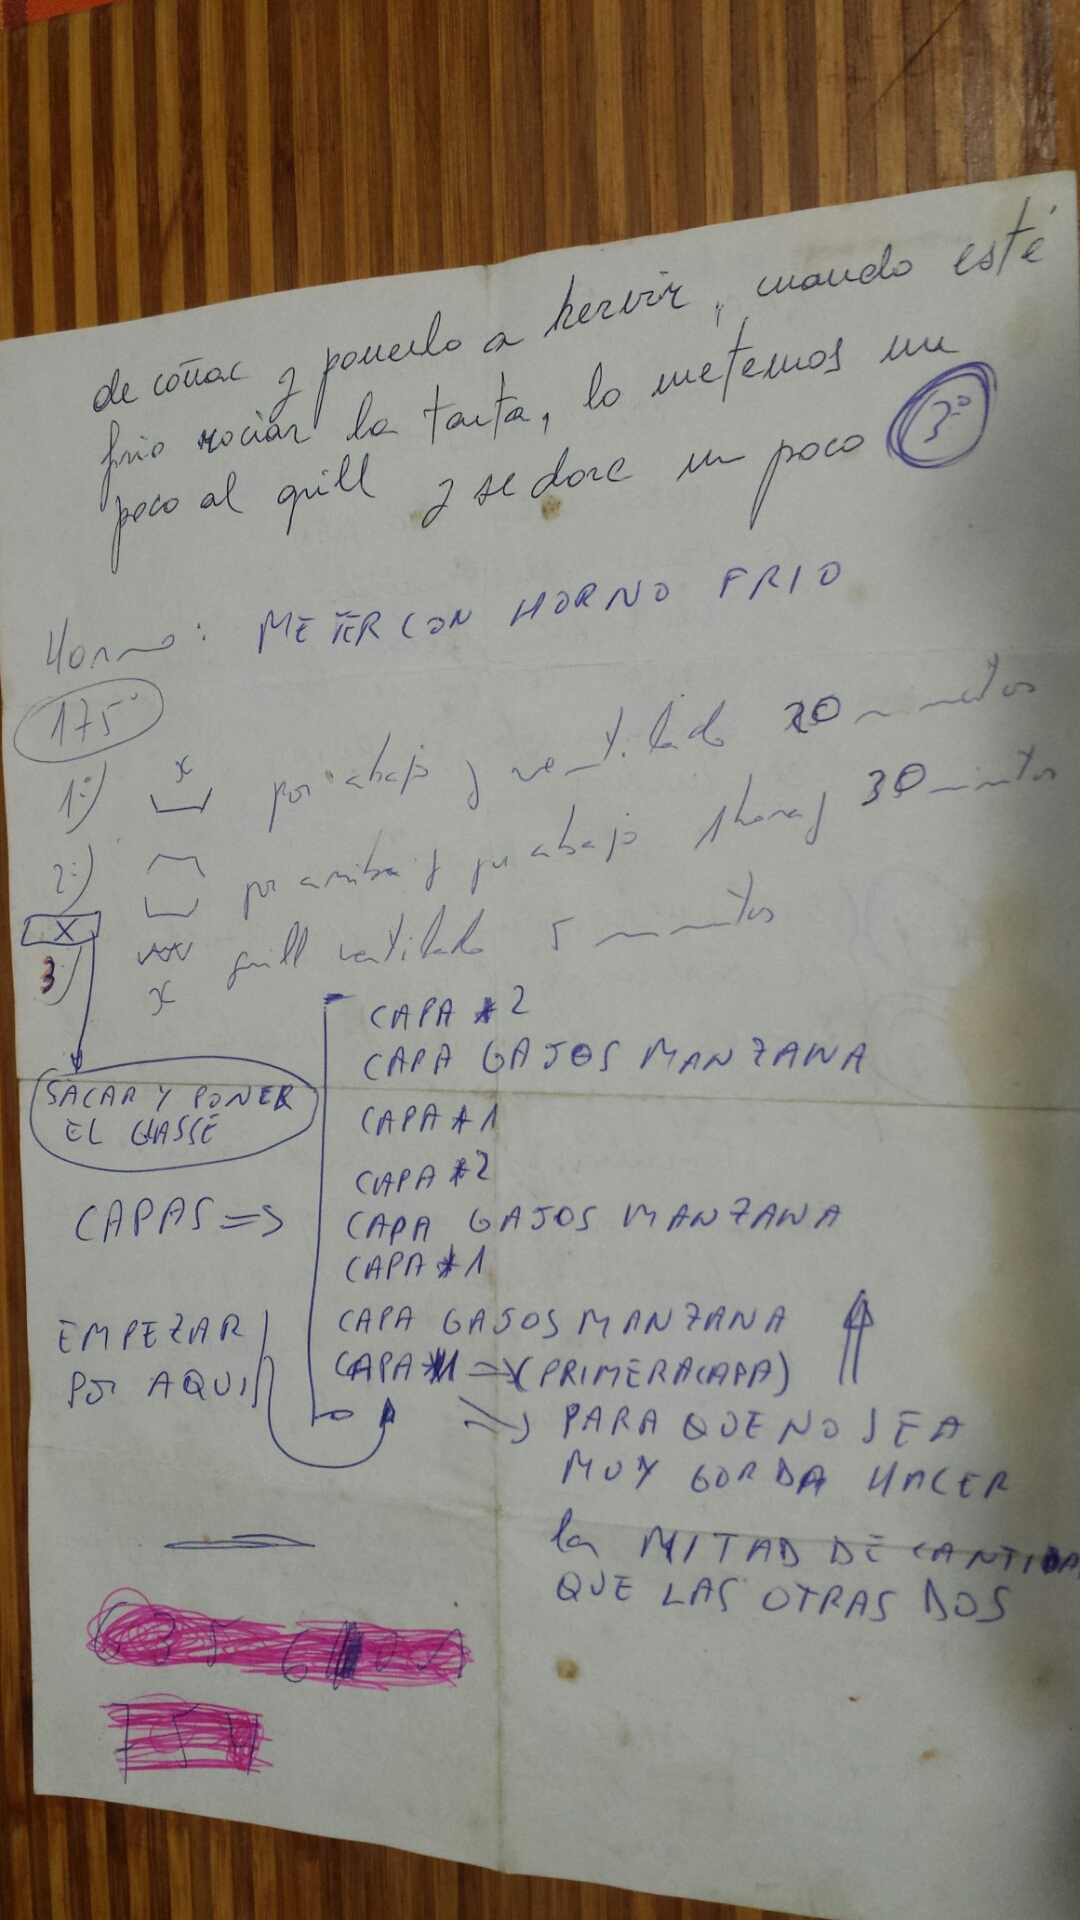 de coñac y ponerlo a hervir, cuando esté
frio rociar la tarta, lo metemos un
poco al grill y se dore un poco 3º
Horno: METER CON HORNO FRIO
175º
1º) x por abajo y ventilado 20 minutos
2º) por arriba y por abajo 1 hora y 30 minutos
X
3) x grill ventilado 5 minutos
SACAR Y PONER
EL GLASSÉ
CAPAS =>
CAPA *2
CAPA GAJOS MANZANA
CAPA *1
CAPA *2
CAPA GAJOS MANZANA
CAPA *1
CAPA GAJOS MANZANA
CAPA *1 => (PRIMERA CAPA)
EMPEZAR
POR AQUI
=> PARA QUE NO SEA
MUY GORDA HACER
la MITAD DE CANTIDA
QUE LAS OTRAS DOS